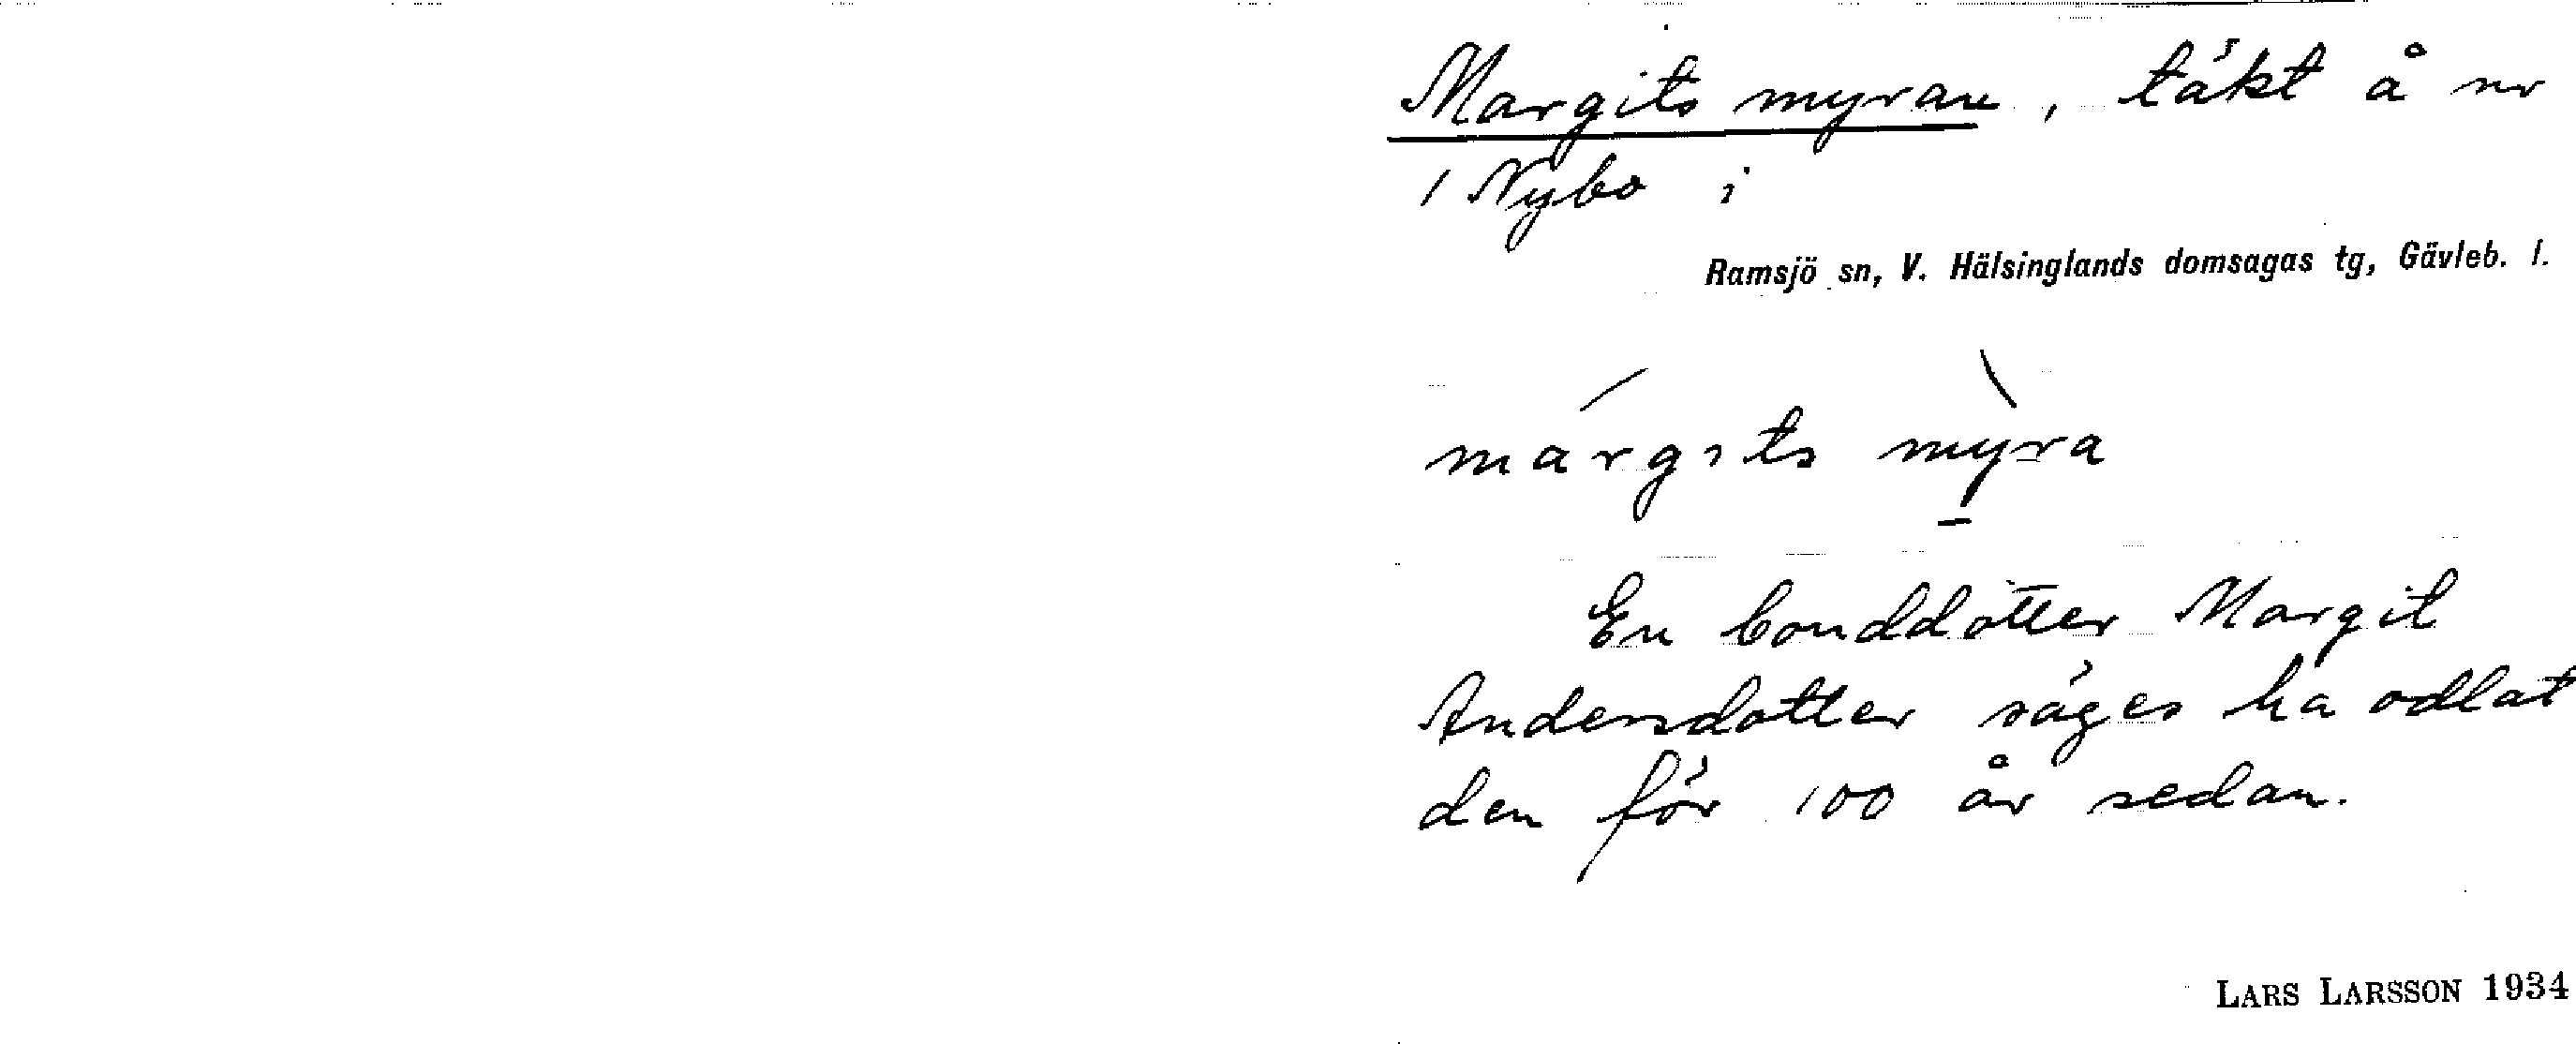 Margits myran, täkt å nr
1 Nybo i
Ramsjö sn, V. Hälsinglands domsagas tg, Gävleb. l.
márgits mỳra
En bonddotter Margit
Andersdotter säges ha odlat
den för 100 år sedan.
LARS LARSSON 1934